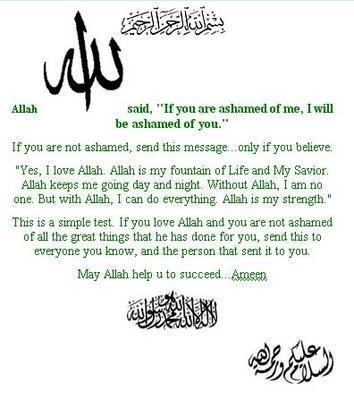 بسم الله الرحمن الرحيم
الله
Allah said, "If you are ashamed of me, I will
be ashamed of you."
If you are not ashamed, send this message...only if you believe.
"Yes, I love Allah. Allah is my fountain of Life and My Savior.
Allah keeps me going day and night. Without Allah, I am no
one. But with Allah, I can do everything. Allah is my strength."
This is a simple test. If you love Allah and you are not ashamed
of all the great things that he has done for you, send this to
everyone you know, and the person that sent it to you.
May Allah help u to succeed...Ameen
لا إله إلا الله محمد رسول الله
السلام عليكم ورحمة الله